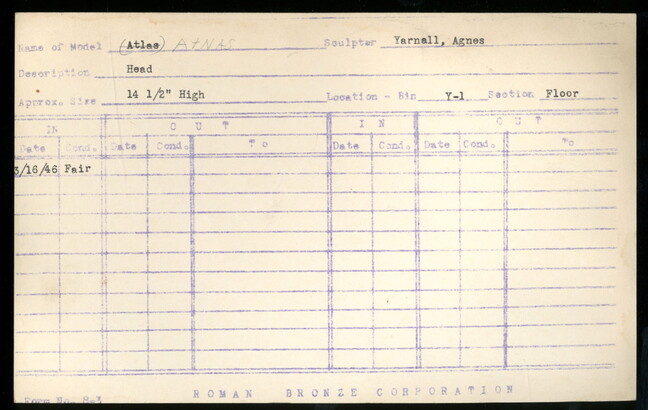 Name of Model (Atlas) ATNAS Sculptor Yarnall, Agnes
Description Head
Approx. Size 14 1/2" High Location - Bin Y-1 Section Floor
IN OUT IN OUT
Date Cond. Date Cond. To Date Cond. Date Cond. To
3/16/46 Fair
Form No. 8-3 ROMAN BRONZE CORPORATION